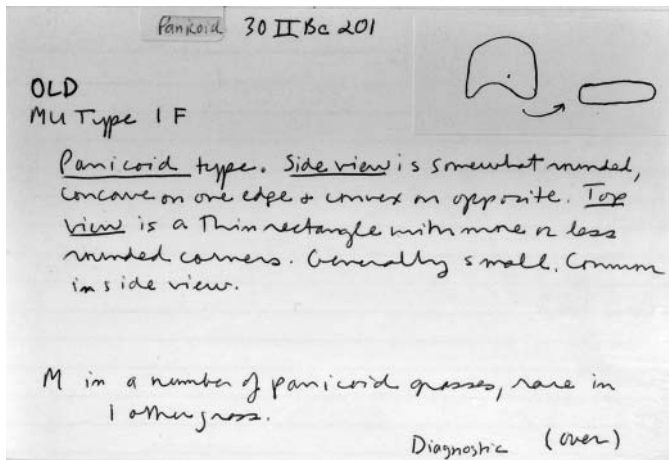 Panicoid 30 II Bc 201
OLD
MU Type 1 F
Panicoid type. Side view is somewhat rounded,
concave on one edge & convex on opposite. Top
view is a thin rectangle with more or less
rounded corners. Generally small. Common
in side view.
M in a number of panicoid grasses, rare in
1 other grass.
Diagnostic (over)